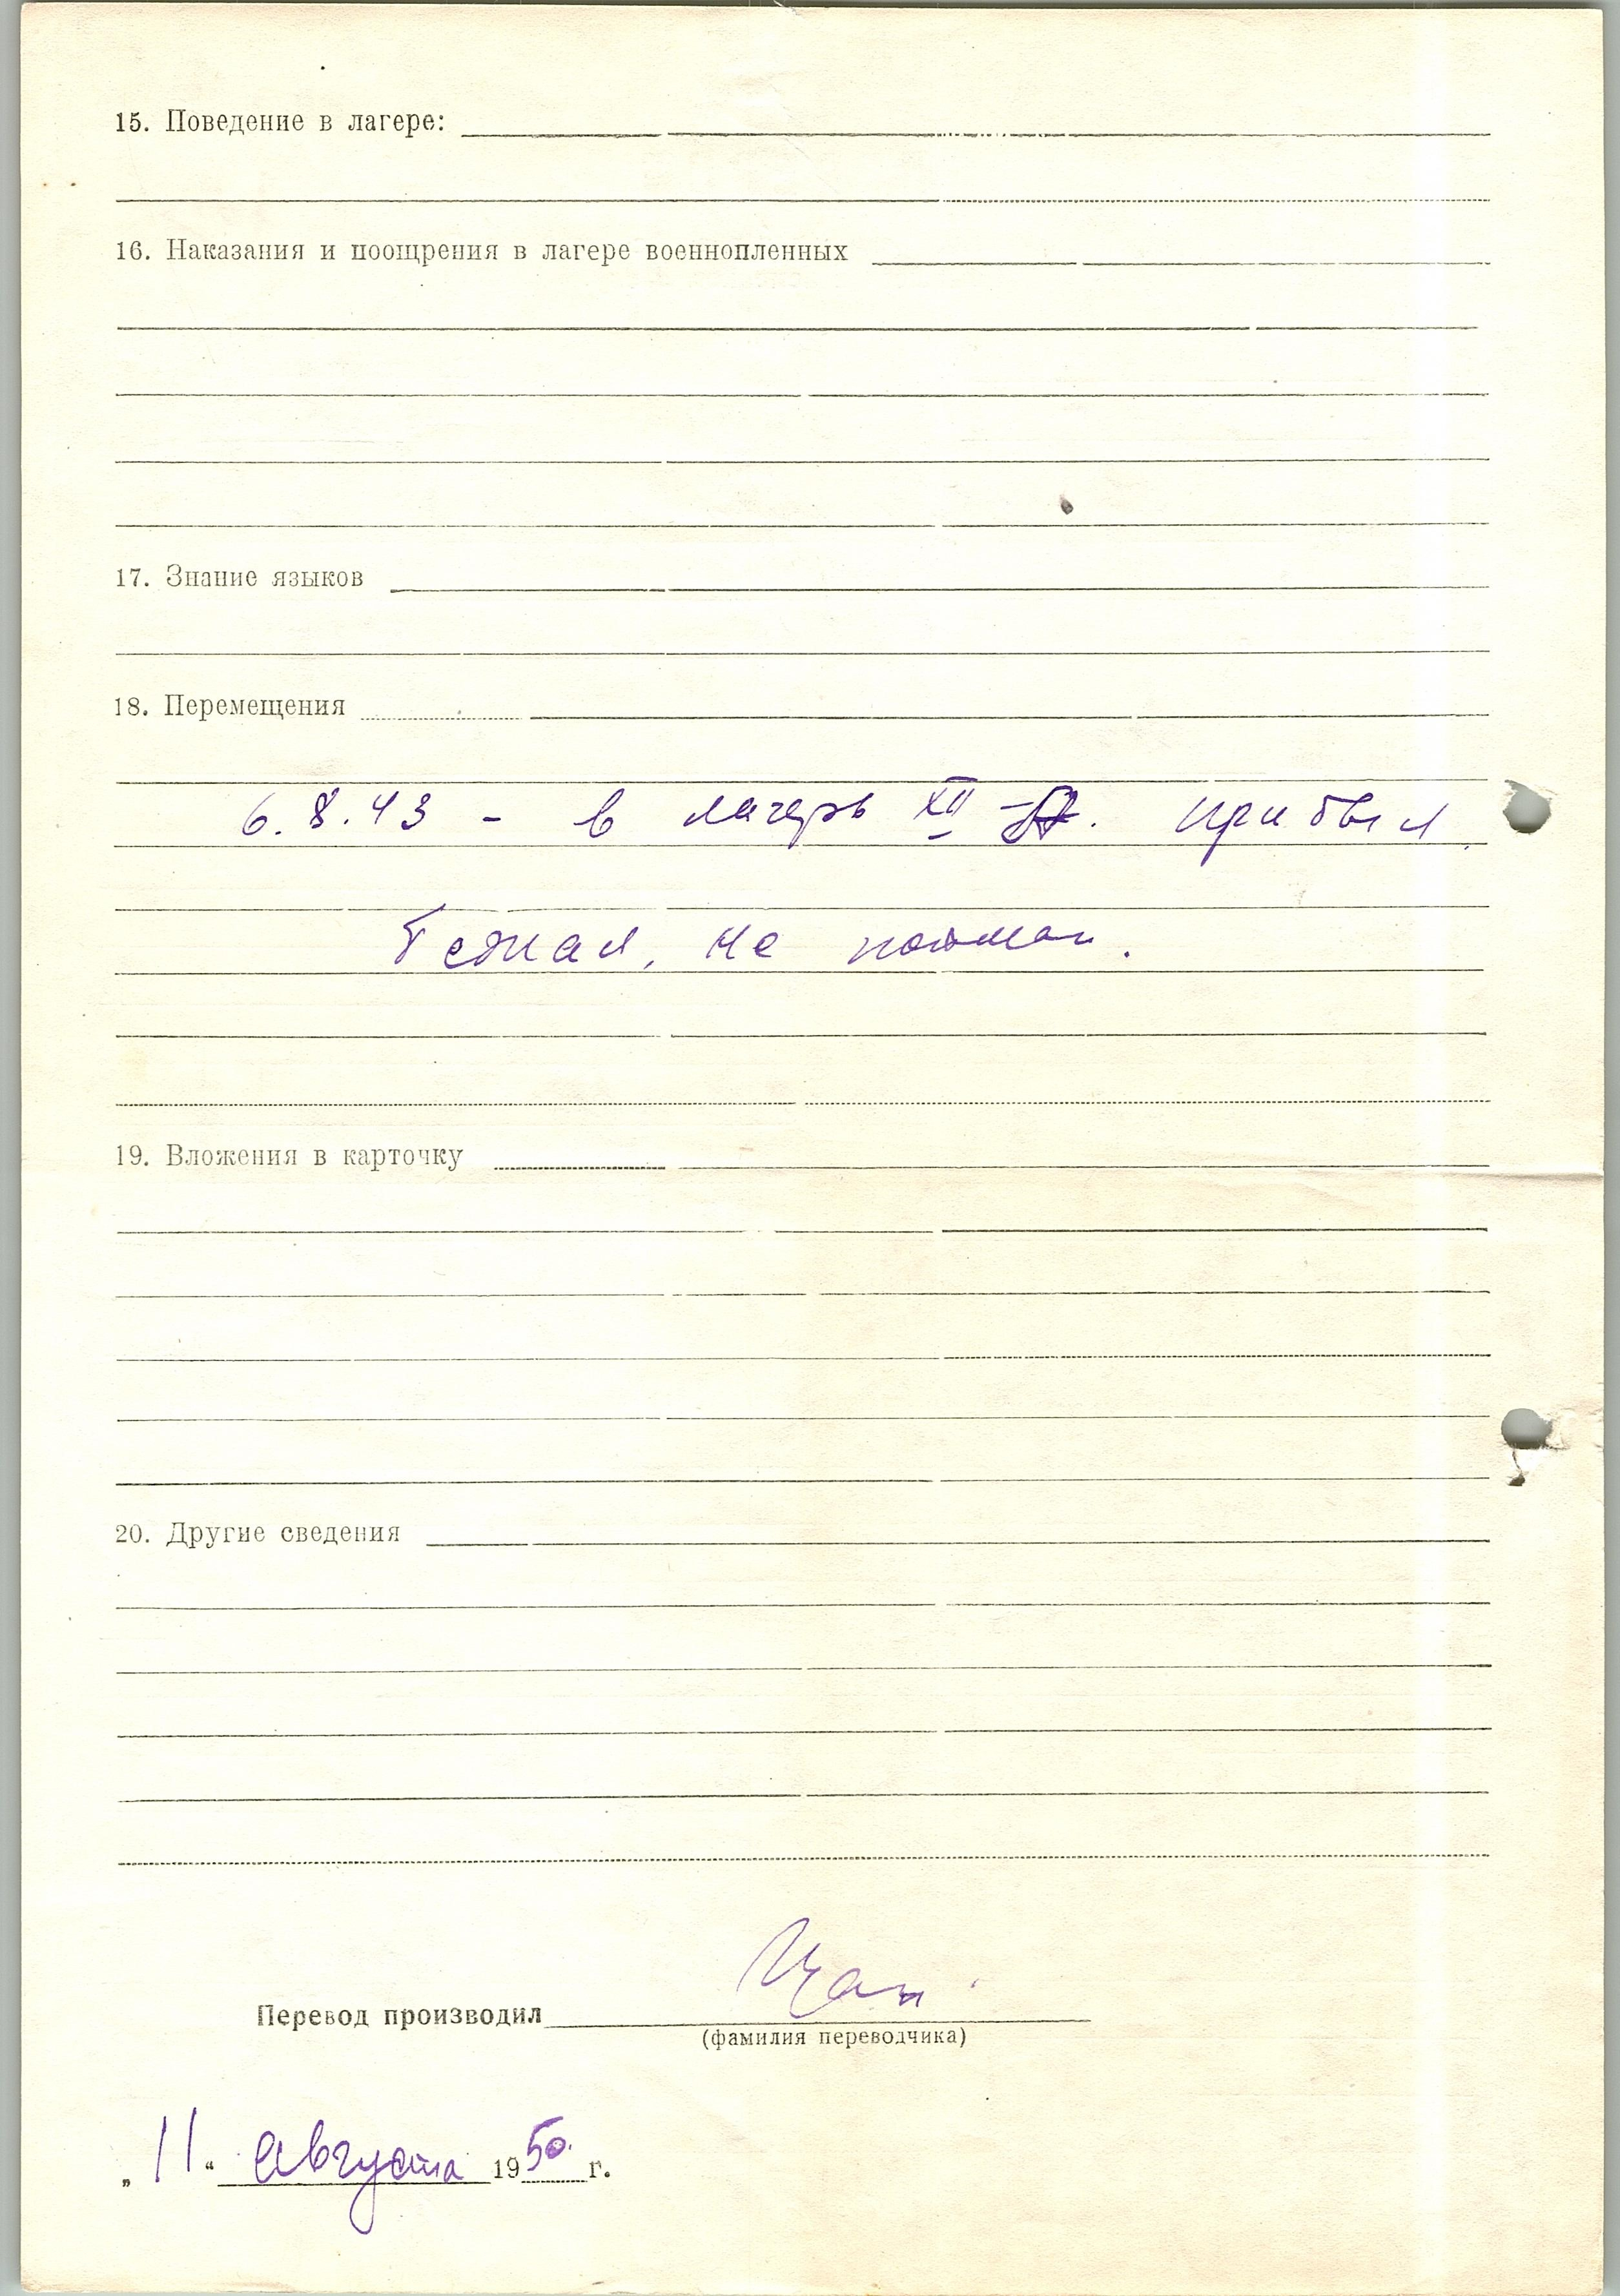 15. Поведение в лагере:
16. Наказания и поощрения в лагере военнопленных
17. Знание языков
18. Перемещения
6.8.43 - в лагерь XII - . прибыл
Бежал, не пойман.
19. Вложения в карточку
20. Другие сведения
Перевод производил
(фамилия переводчика)
„11“ августа 1950 г.